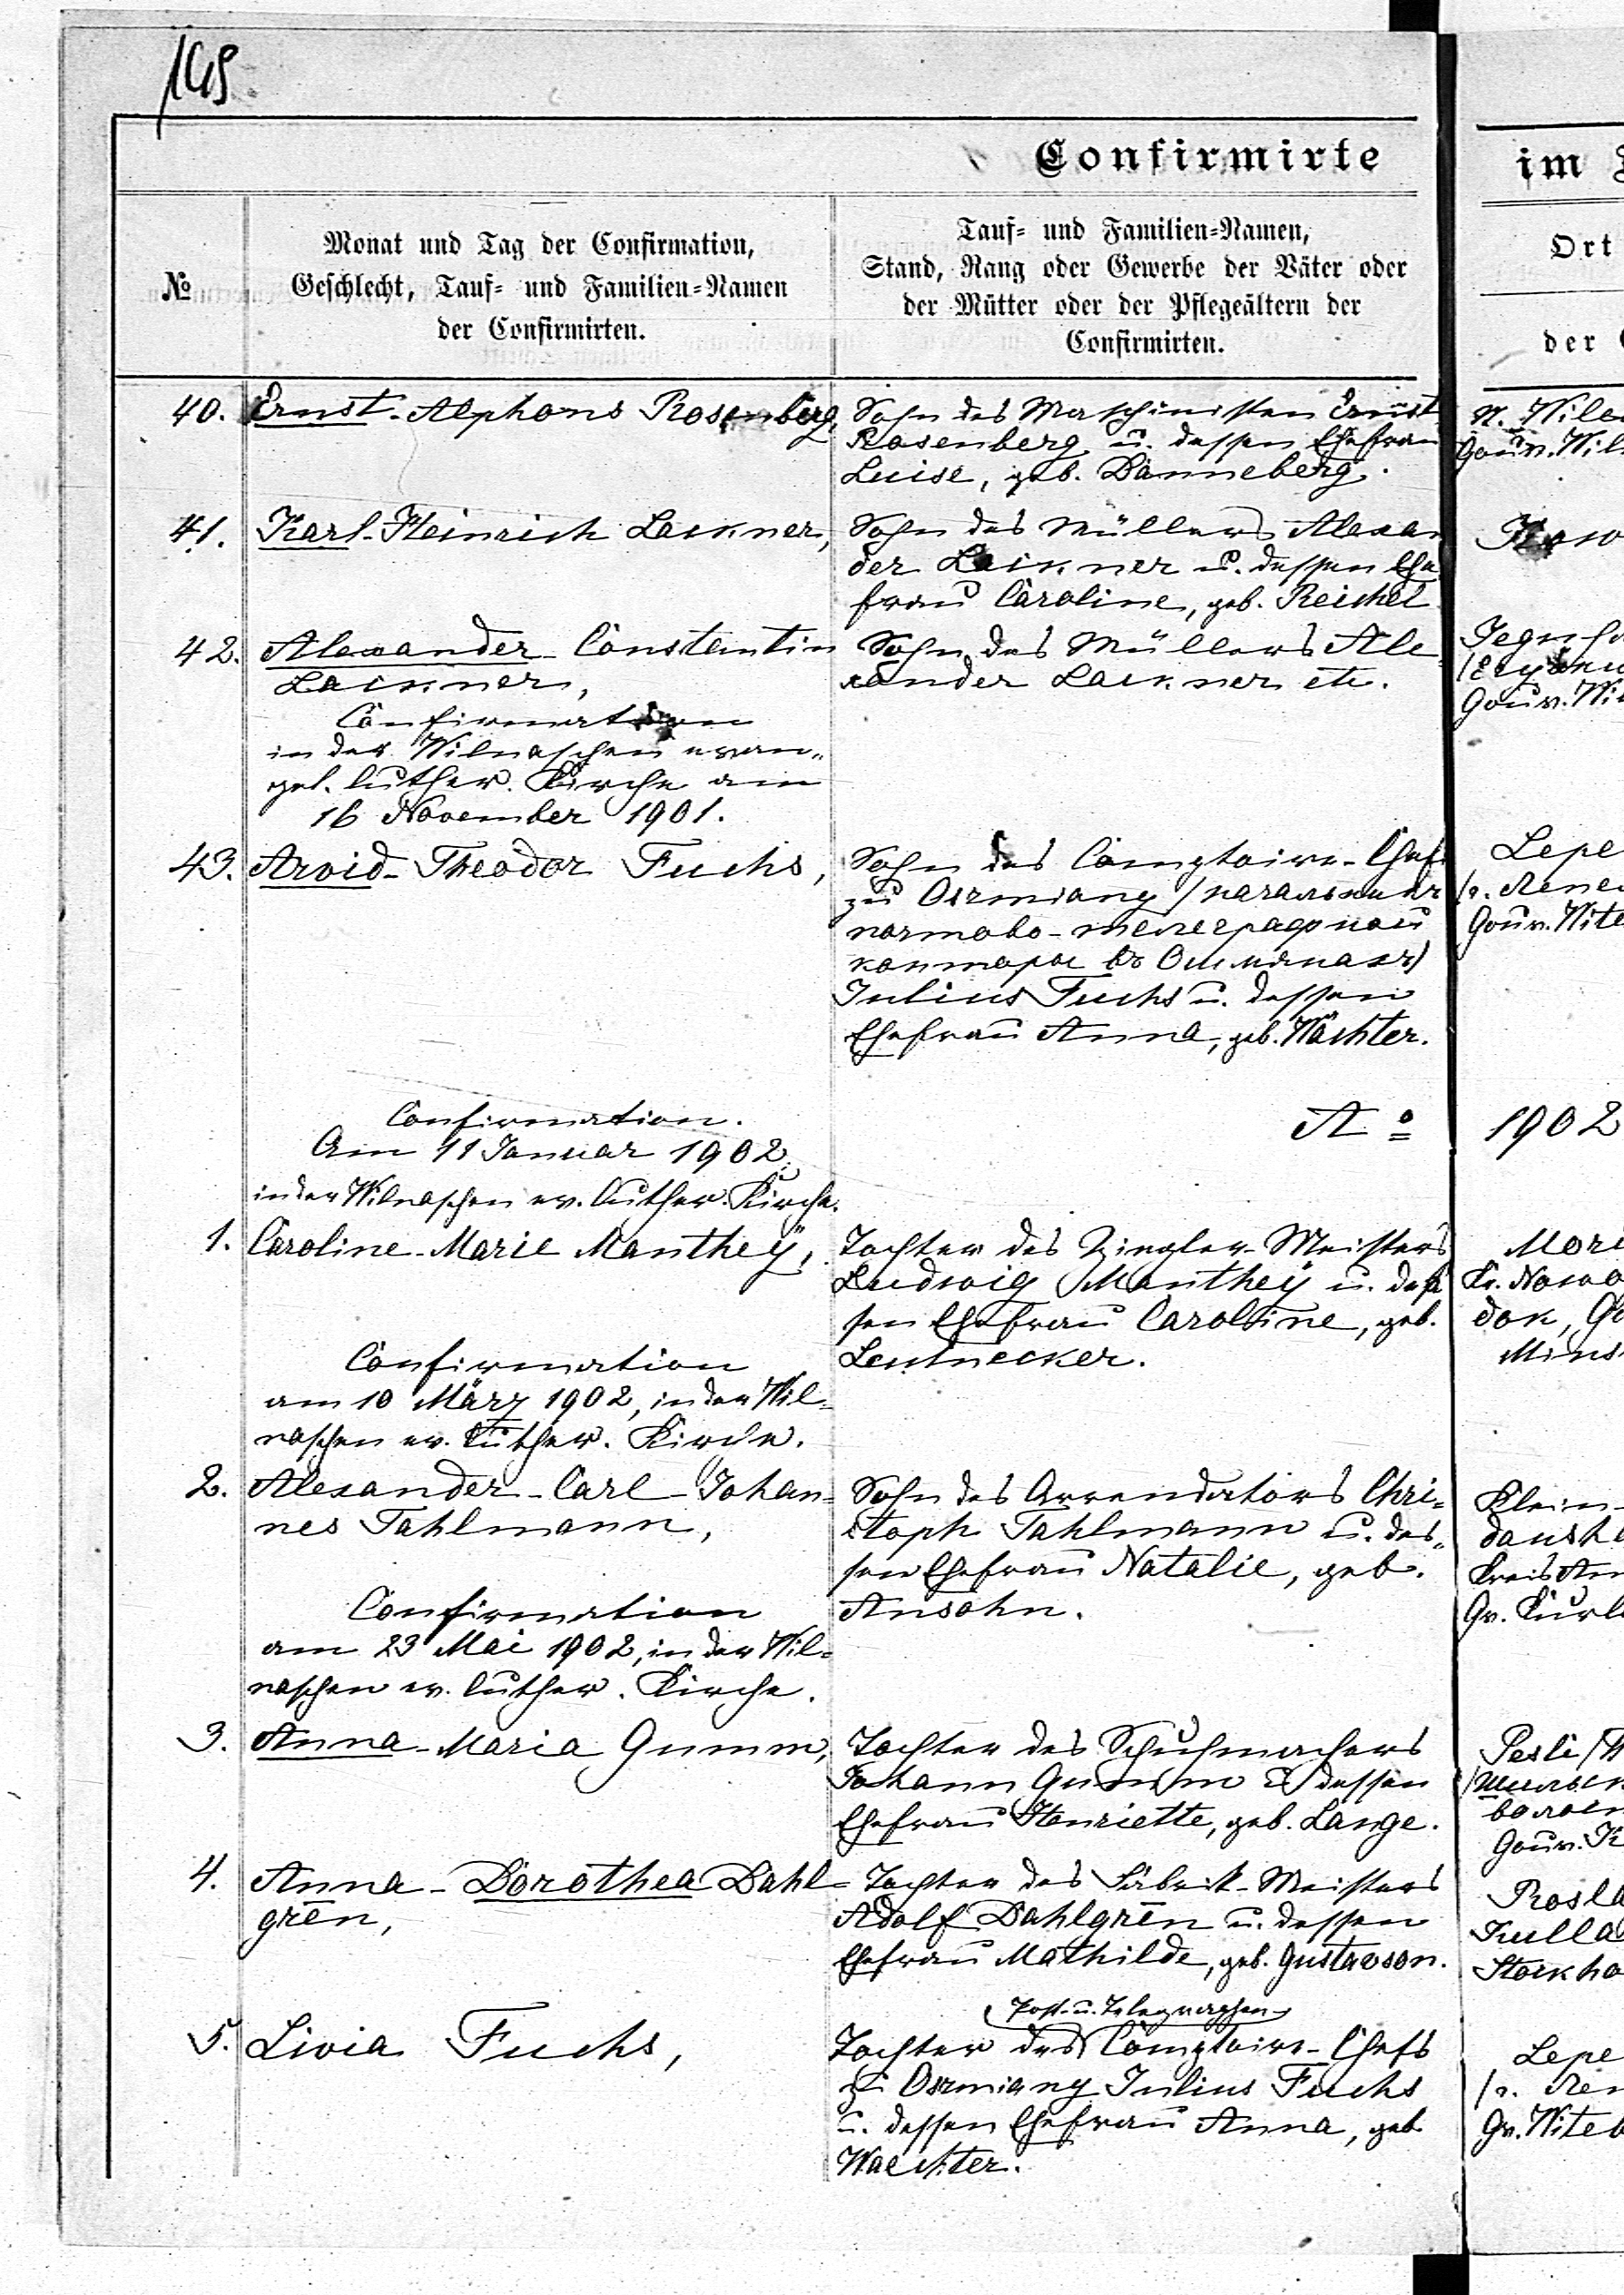 149
Confirmirte
im
№
Monat und Tag der Confirmation,
Geschlecht, Tauf- und Familien-Namen
der Confirmirten.
Tauf- und Familien-Namen,
Stand, Rang oder Gewerbe der Väter oder
der Mütter oder der Pflegeältern der
Confirmirten.
Ort
der
40. Ernst-Alphons Rosenberg,
Sohn des Maschinisten Ernst
Rosenberg u. dessen Ehefrau
Luise, geb. Danneberg.
N. Wile
Gouv. Wil
41. Karl-Heinrich Lackner,
Sohn des Müllers Alexan
der Lackner u. dessen Ehe
frau Caroline, geb. Reichel
Kow
42. Alexander-Constantin
Lackner,
Sohn des Müllers Ale
xander Lackner etc.
Gouv. Wi
Confirmation
in der Wilnaschen evan-
gel. luther. Kirche am
16 November 1901.
43. Arvid-Theodor Fuchs,
Sohn des Comptoirs-Chefs
zu Oszmiany (начальникъ
почтово-телеграфной
конторы въ Ошмянахъ)
Julius Fuchs u. dessen
Ehefrau Anna, geb. Wächter.
Lepe
(г. Лепе
Gouv. Wite
Confirmation.
Am 11 Januar 1902
in der Wilnaschen ev. luther. Kirche.
A° 1902
1. Caroline-Marie Manthey,
Tochter des Ziegler-Meisters
Ludwig Manthey u. des
sen Ehefrau Caroline, geb.
Leutnecker.
Kr. Nowo
dok, Go
Mins
Confirmation
am 10 März 1902, in der Wil-
naschen ev. luther. Kirche.
2. Alexander-Carl-Johan-
nes Tahlmann,
Sohn des Arrendators Chri-
stoph Tahlmann u. des-
sen Ehefrau Natalie, geb.
Ansohn.
Klein-
Kreis
Gv. Kurl
Confirmation
am 23 Mai 1902, in der Wil-
naschen ev. luther. Kirche.
3. Anna-Maria Gumm,
Tochter des Schuhmachers
Johann Gumm u. dessen
Ehefrau Henriette, geb. Lange.
Gouv. K
4. Anna-Dorothea Dahl-
grén,
Tochter des Fabrik-Meisters
Adolf Dahlgrén u. dessen
Ehefrau Mathilde, geb. Gustavson.
Rosla
Kulla
Stockho
5. Livia Fuchs,
Post- u. Telegraphen-
Tochter des Comptoirs-Chefs
zu Oszmiany Julius Fuchs
u. dessen Ehefrau Anna, geb.
Waechter.
Lepe
(г. Леп
Gv. Witeb